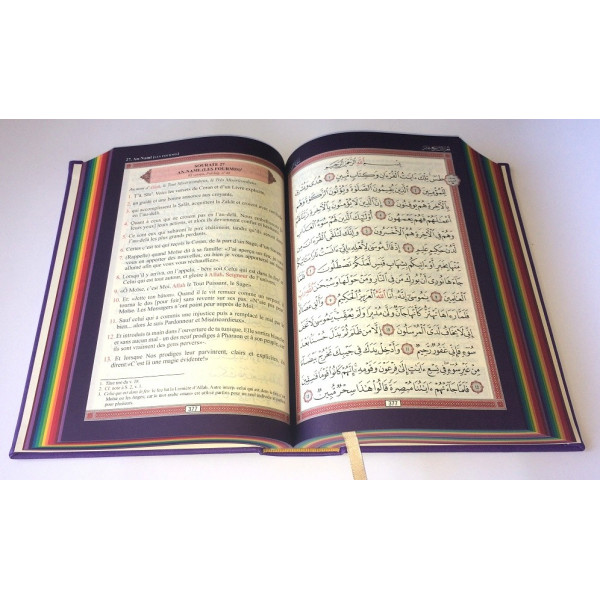 27. An-Naml
SOURATE 27
AN-NAML (LES FOURMIS)
Au nom d'Allah, le Tout Miséricordieux, le Très Miséricordieux.
1. Tâ, Sîn. Voici les versets du Coran et d'un Livre explicite,
2. un guide et une bonne annonce aux croyants,
3. qui accomplissent la Salât, acquittent la Zakât et croient avec certitude
en l'au-delà.
4. Quant à ceux qui ne croient pas en l'au-delà, Nous embellissons
[à leurs yeux] leurs actions, et alors ils deviennent confus et hésitants.
5. Ce sont eux qui subiront le pire châtiment, tandis qu'ils seront dans
l'au-delà les plus grands perdants.
6. Certes c'est toi qui reçois le Coran, de la part d'un Sage, d'un Savant.
7. (Rappelle) quand Moïse dit à sa famille: «J'ai aperçu un feu; je vais
vous en apporter des nouvelles, ou bien je vous apporterai un tison
allumé afin que vous vous réchauffiez».
8. Lorsqu'il y arriva, on l'appela, - béni soit Celui qui est dans le feu et
Celui qui est tout autour, et gloire à Allah, Seigneur de l'univers.
9. «Ô Moïse, c'est Moi, Allah le Tout Puissant, le Sage».
10. Et: «Jette ton bâton». Quand il le vit remuer comme un serpent, il
tourna le dos [pour fuir] sans revenir sur ses pas. «N'aie pas peur,
Moïse. Les Messagers n'ont point peur auprès de Moi.
11. Sauf celui qui a commis une injustice puis a remplacé le mal par le
bien... alors Je suis Pardonneur et Miséricordieux».
12. Et introduis ta main dans l'ouverture de ta tunique. Elle sortira blanche
et sans aucun mal - un des neuf prodiges à Pharaon et à son peuple, car
ils sont vraiment des gens pervers».
13. Et lorsque Nos prodiges leur parvinrent, clairs et explicites, ils
dirent: «C'est là une magie évidente!»
377
بسم الله الرحمن الرحيم
طس تلك ءايت القرءان وكتاب مبين ١ هدى وبشرى
للمؤمنين ٢ الذين يقيمون الصلوة ويؤتون الزكوة
وهم بالءاخرة هم يوقنون ٣ إن الذين لا يؤمنون بالءاخرة زينا لهم
أعملهم فهم يعمهون ٤ أولئك الذين لهم سوء العذاب
وهم في الءاخرة هم الأخسرون ٥ وإنك لتلقى القرءان من
لدن حكيم عليم ٦ إذ قال موسى لأهله إني ءانست نارا سءاتيكم
منها بخبر أو ءاتيكم بشهاب قبس لعلكم تصطلون ٧ فلما
جاءها نودي أن بورك من في النار ومن حولها وسبحن الله رب
العلمين ٨ يموسى إنه أنا الله العزيز الحكيم ٩ وألق عصاك
فلما رءاها تهتز كأنها جان ولى مدبرا ولم يعقب يموسى لا تخف
إني لا يخاف لدي المرسلون ١٠ إلا من ظلم ثم بدل حسنا بعد
سوء فإني غفور رحيم ١١ وأدخل يدك في جيبك تخرج بيضاء
من غير سوء في تسع ءايت إلى فرعون وقومه إنهم كانوا قوما فسقين ١٢
فلما جاءتهم ءايتنا مبصرة قالوا هذا سحر مبين ١٣
377